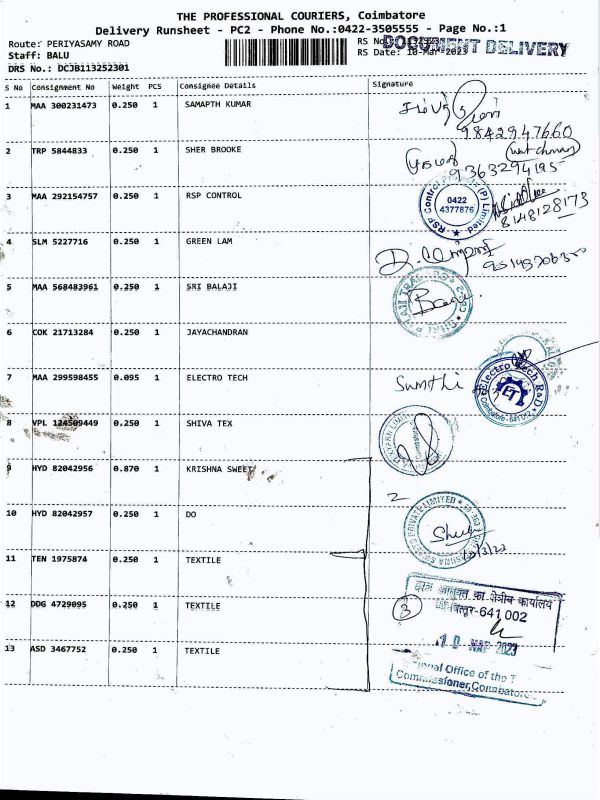 THE PROFESSIONAL COURIERS, Coimbatore
Delivery Runsheet - PC2 - Phone No.:0422-3505555 - Page No.:1
Route: PERIYASAMY ROAD
RS No
DOCUMENT DELIVERY
Staff: BALU
RS Date: 10-Mar-2023
DRS No.: DCJB113252301
S No Consignment No Weight PCS Consignee Details Signature
1 MAA 300231473 0.250 1 SAMAPTH KUMAR
9842947660
2 TRP 5844833 0.250 1 SHER BROOKE
9363294195
3 MAA 292154757 0.250 1 RSP CONTROL
RSP Control (P) Limited.
0422
4377876
8148128173
4 SLM 5227716 0.250 1 GREEN LAM
5 MAA 568483961 0.250 1 SRI BALAJI
6 COK 21713284 0.250 1 JAYACHANDRAN
7 MAA 299598455 0.095 1 ELECTRO TECH
Sumthi
Electro Tech R&D
ET
8 VPL 124509449 0.250 1 SHIVA TEX
9 HYD 82042956 0.870 1 KRISHNA SWEET
2
10 HYD 82042957 0.250 1 DO
11 TEN 1975874 0.250 1 TEXTILE
12 DDG 4729095 0.250 1 TEXTILE
3
आयुक्त का क्षेत्रीय कार्यालय
641 002
10 MAR 2023
13 ASD 3467752 0.250 1 TEXTILE
Office of the
Commissioner, Coimbatore